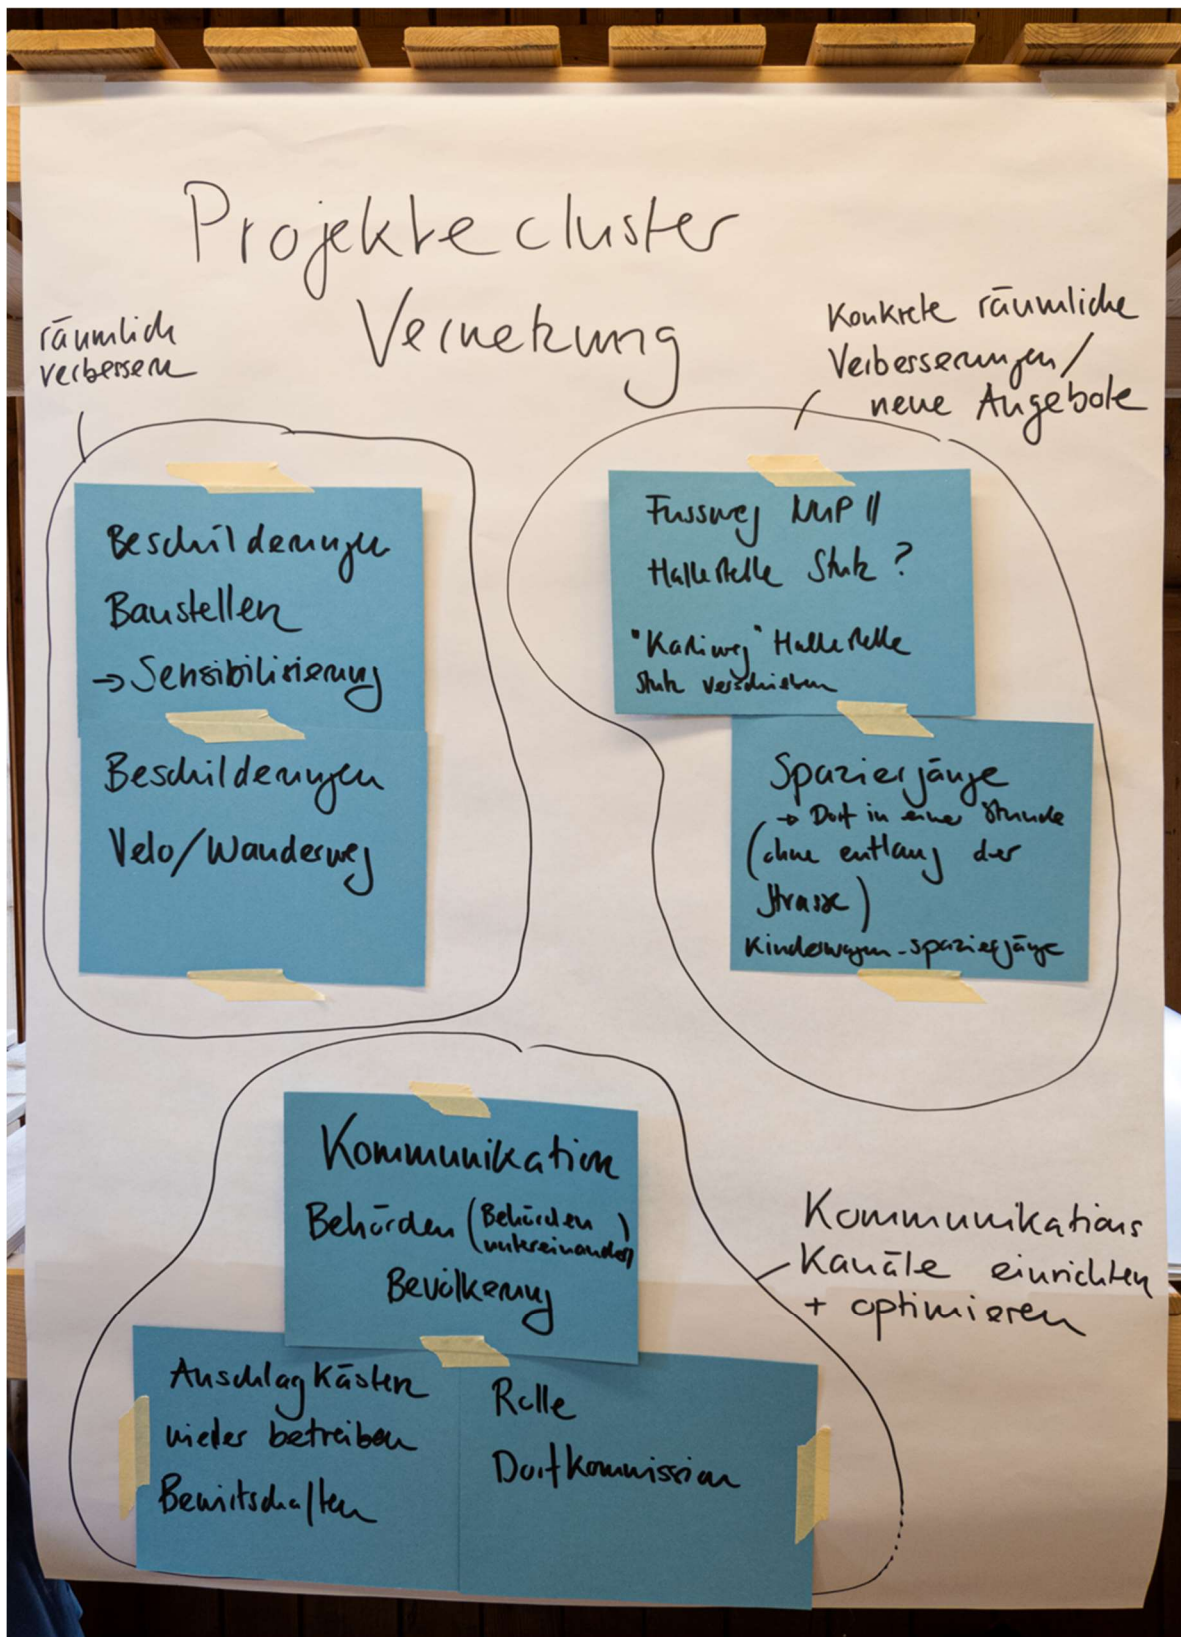 Projektecluster
Vernetzung
räumlich
verbessern
Beschilderungen
Baustellen
→ Sensibilisierung
Beschilderungen
Velo/Wanderweg
Konkrete räumliche
Verbesserungen/
neue Angebote
Fussweg
Haltestelle Stutz ?
Haltestelle
Stutz verschieben
Spaziergänge
→ Dorf in einer Stunde
(ohne entlang der
Strasse)
Kinderwagen-spaziergänge
Kommunikation
Behörden (Behörden
untereinander)
Bevölkerung
Anschlagkästen
wieder betreiben
Bewirtschaften
Rolle
Dorfkommission
Kommunikations
Kanäle einrichten
+ optimieren